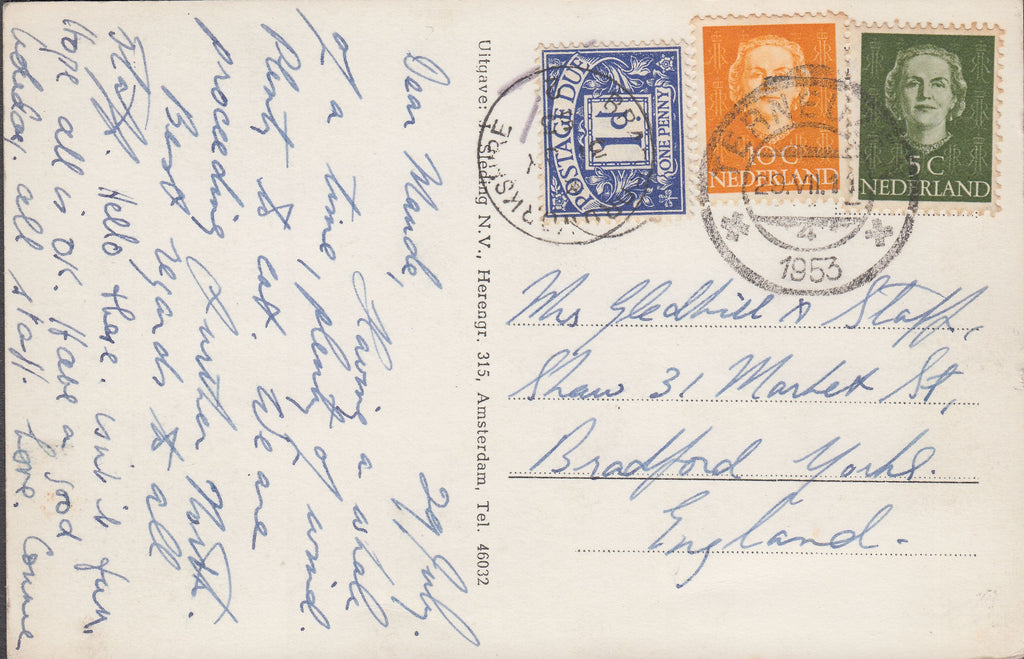 29 July.
Dear Maude,
Having a whale
of a time, plenty of wind.
Plenty to eat. We are
proceeding further North.
Best regards to all
Staff. Hello there. isn't it fun.
Hope all is OK. Have a good
holiday, all staff. Love. Connie
Uitgave: Sleding N.V., Herengr. 315, Amsterdam, Tel. 46032
POSTAGE DUE
1D
ONE PENNY
10 C
NEDERLAND
5 C
NEDERLAND
29.VII.
4
1953
Mrs Gledhill & Staff,
Shaw 31 Market St,
Bradford Yorks.
England.